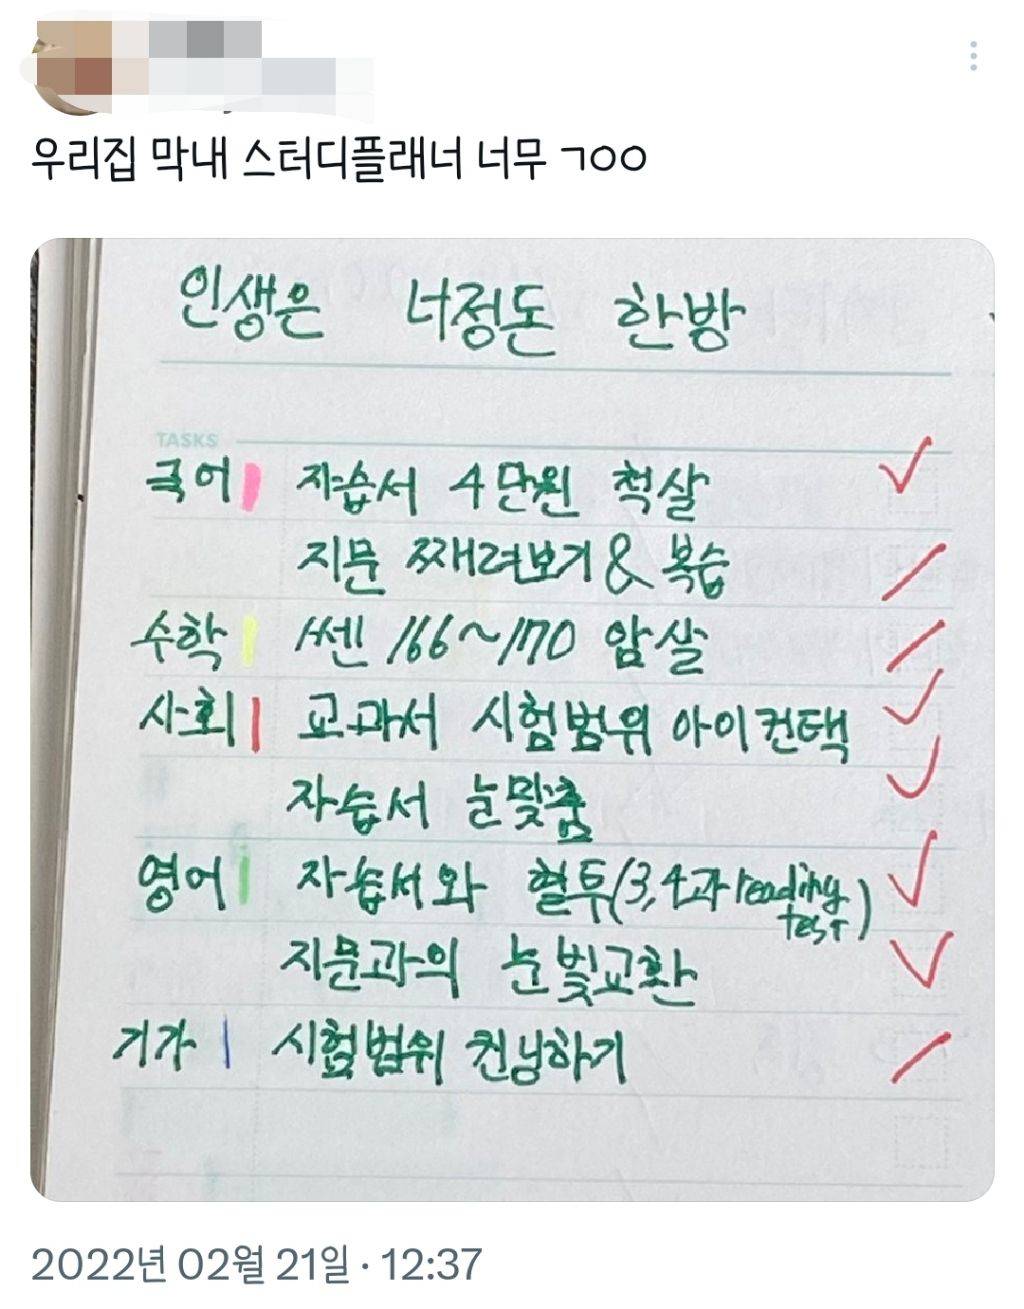 우리집 막내 스터디플래너 너무 ㄱㅇㅇ
인생은 너정도 한방
TASKS
국어 자습서 4단원 척살 ✓
지문 째려보기 & 복습 /
수학 쎈 166~170 암살 /
사회 교과서 시험범위 아이컨택 ✓
자습서 눈맞춤 ✓
영어 자습서와 혈투(3,4과 reading test) ✓
지문과의 눈빛교환 ✓
기가 시험범위 컨닝하기 /
2022년 02월 21일 · 12:37